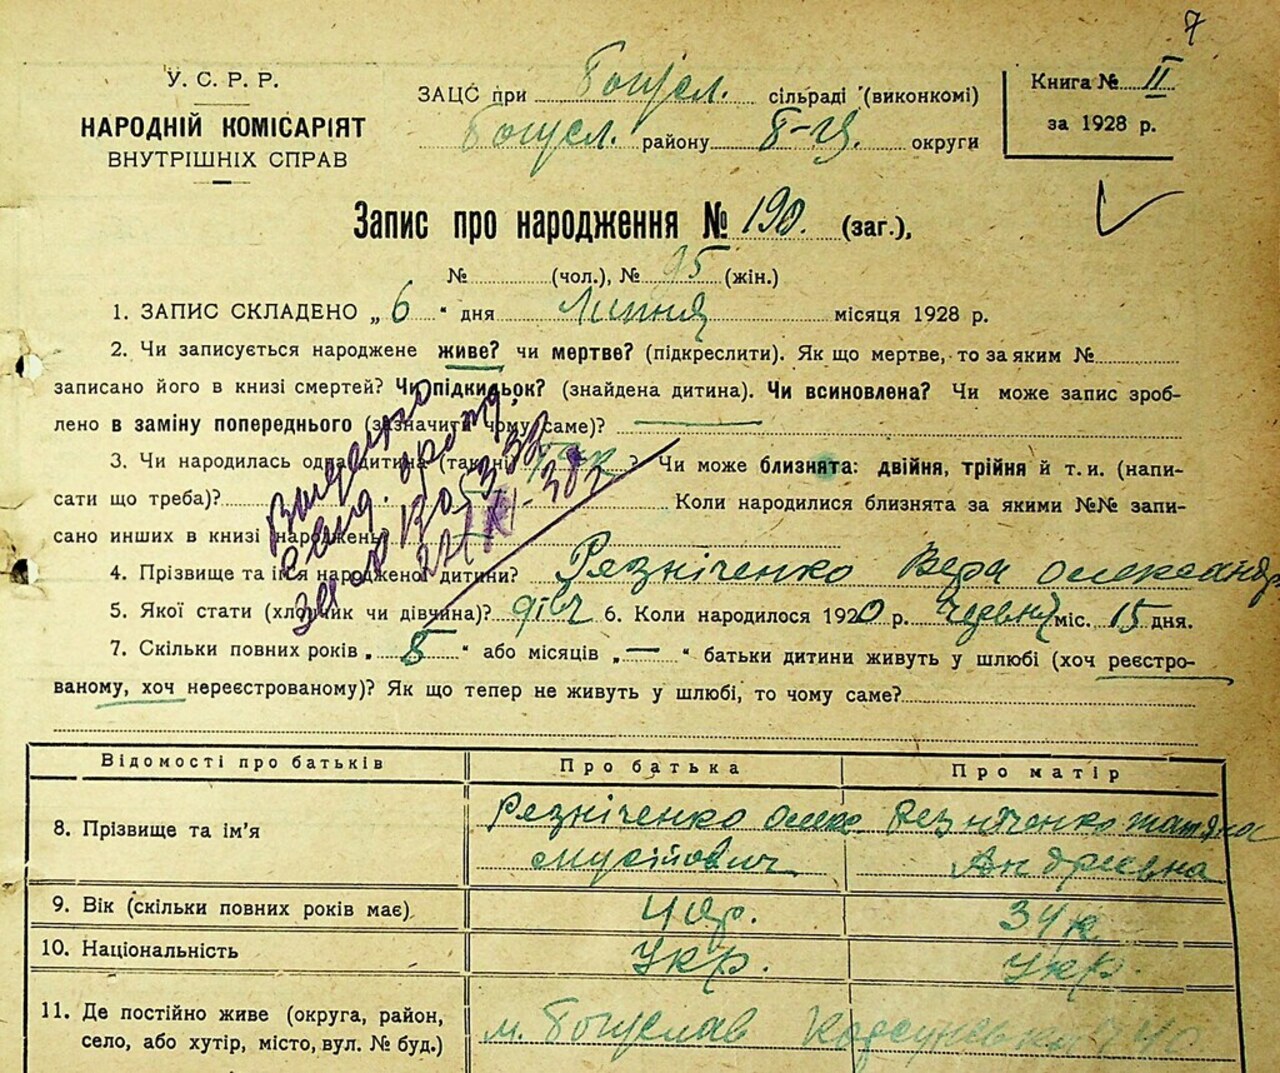 7
У. С. Р. Р.
НАРОДНІЙ КОМІСАРІЯТ
ВНУТРІШНІХ СПРАВ
ЗАЦС при Богусл. сільраді (виконкомі)
Богусл. району Б-Ц. округи
Книга № II
за 1928 р.
Запис про народження № 190. (заг.),
№ (чол.), № 95 (жін.)
1. ЗАПИС СКЛАДЕНО „ 6 “ дня Липня місяця 1928 р.
2. Чи записується народжене живе? чи мертве? (підкреслити). Як що мертве, то за яким №
записано його в книзі смертей? Чи підкидьок? (знайдена дитина). Чи всиновлена? Чи може запис зроб-
лено в заміну попереднього (зазначити чому саме)? —
3. Чи народилась одна дитина (так, ні) так? Чи може близнята: двійня, трійня й т. и. (напи-
сати що треба)? Коли народилися близнята за якими №№ запи-
сано инших в книзі народжень
4. Прізвище та ім'я народженої дитини? Резніченко Вера Олександр
5. Якої стати (хлопчик чи дівчина)? дівч 6. Коли народилося 1920 р. червня міс. 15 дня.
7. Скільки повних років „ 8 “ або місяців „ — “ батьки дитини живуть у шлюбі (хоч реєстро-
ваному, хоч нереєстрованому)? Як що тепер не живуть у шлюбі, то чому саме?
Відомості про батьків Про батька Про матір
8. Прізвище та ім'я Резніченко Олекс. Резніченко Татяна
Мусійович Андріевна
9. Вік (скільки повних років має) 34 р.
10. Національність Укр. Укр.
11. Де постійно живе (округа, район,
село, або хутір, місто, вул. № буд.) м. Богуслав Корсунська